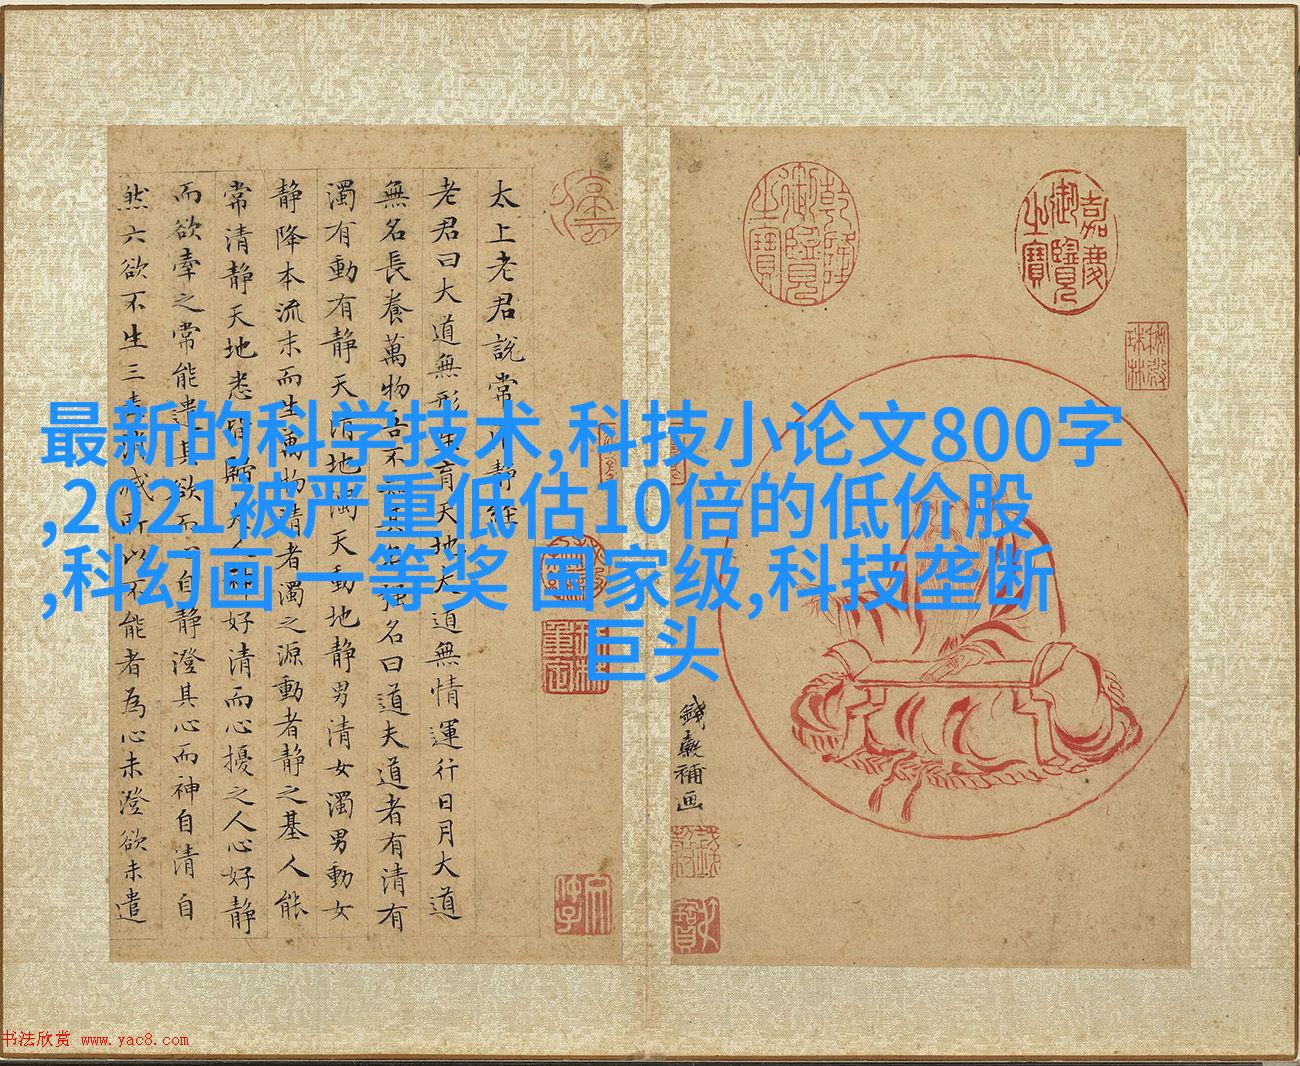 最新的科学技术,科技小论文800字
,2021被严重低估10倍的低价股
,科幻画一等奖 国家级,科技垄断
巨头
太上老君說常清静經
老君曰大道無形生育天地大道無情運行日月大道
無名長養萬物吾不知其名强名曰道夫道者有清有
濁有動有静天清地濁天動地静男清女濁男動女
静降本流末而生萬物清者濁之源動者静之基人能
常清静天地悉皆歸夫人神好清而心擾之人心好静
而欲牽之常能遣其欲而心自静澄其心而神自清自
然六欲不生三毒消滅所以不能者為心未澄欲未遣
乾隆御覽之寶
嘉慶御覽之寶
秘殿珠林
錢穀補画
书法欣赏 www.yac8.com